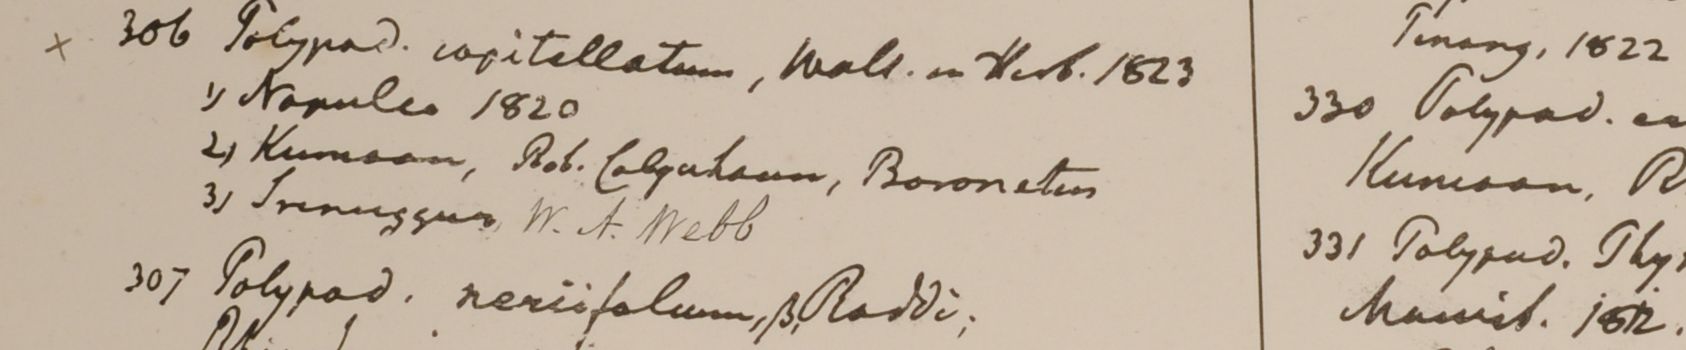 × 306 Polypod. capitellatum, Wall. in Herb. 1823
1) Napalea 1820
2) Kumaon, Rob. Colquhoun, Baronetus
3) Srinuggur, W. A. Webb
307 Polypod. neriifolium, β, Raddi;
Pinang, 1822
330 Polypod.
Kumaon, R
331 Polypod. Thy
Maurit. 1812.